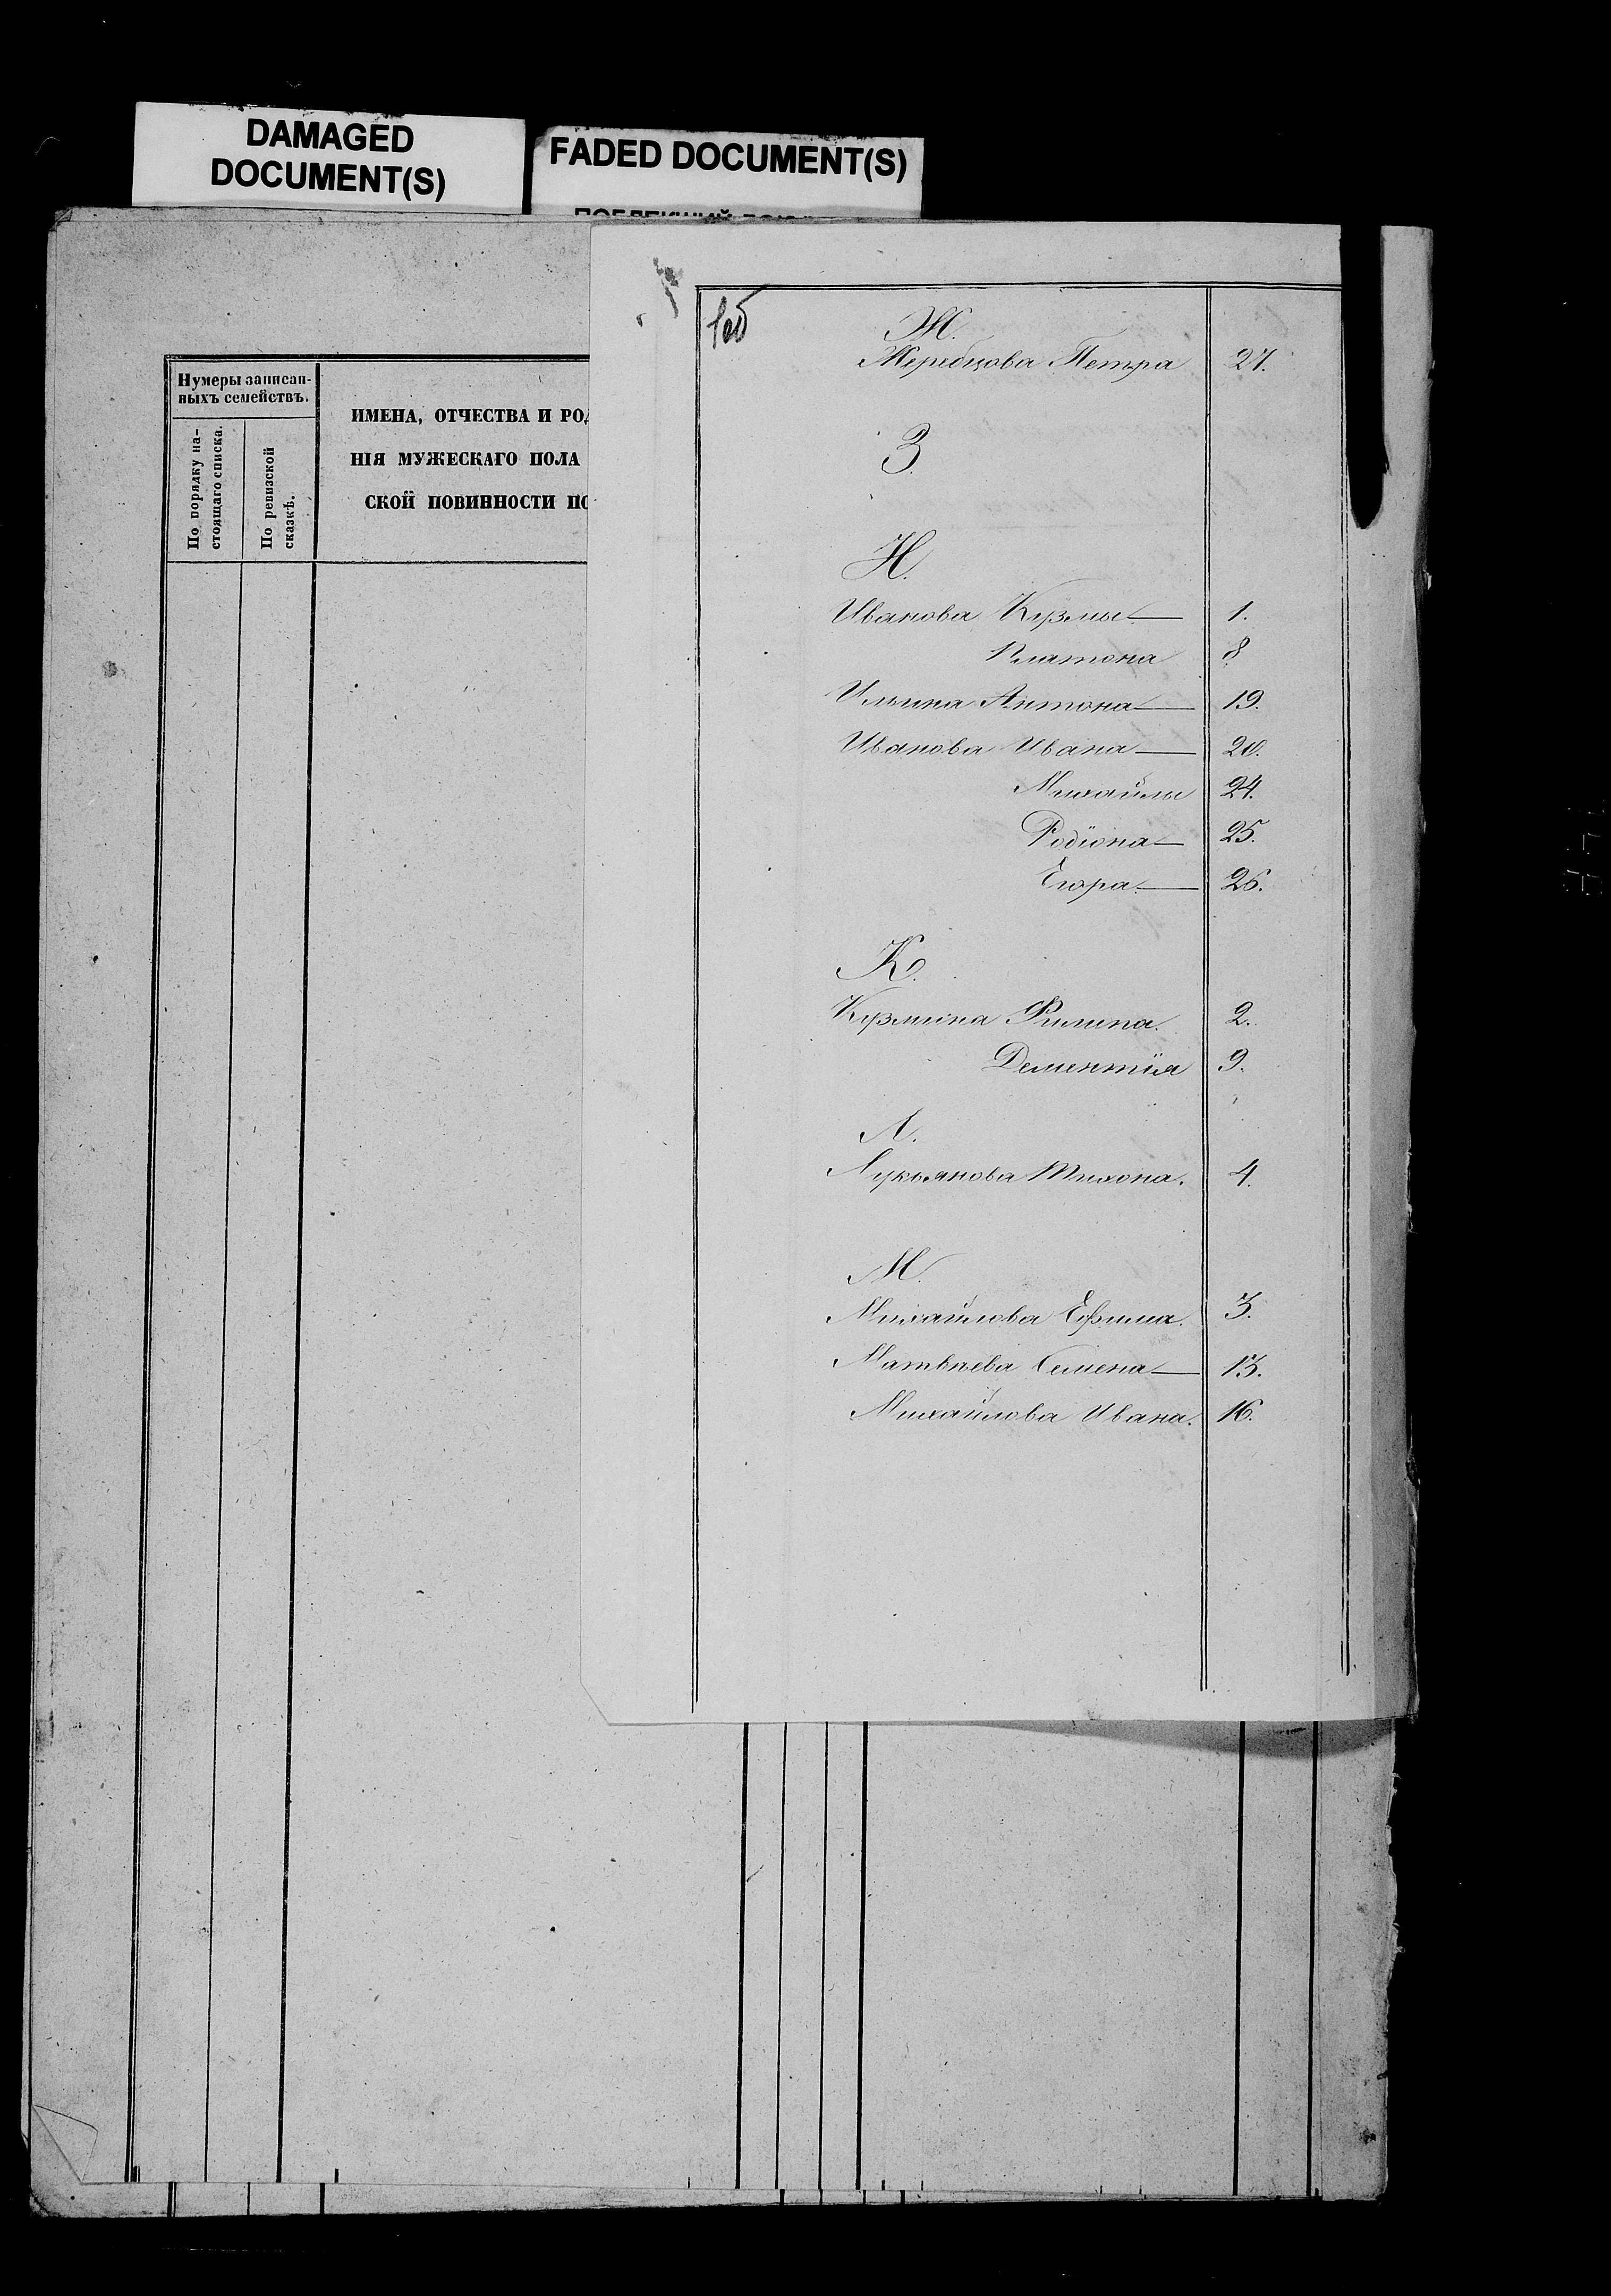 DAMAGED
DOCUMENT(S)
FADED DOCUMENT(S)
Нумеры записан-
ныхъ семействъ.
По порядку на-
стоящаго списка.
По ревизской
сказкѣ.
ИМЕНА, ОТЧЕСТВА И РОД
НІЯ МУЖЕСКАГО ПОЛА
СКОЙ ПОВИННОСТИ ПО
1об
Ж.
Жеребцова Петра 27.
З.
И.
Иванова Кузмы — 1.
Платона 8.
Ильина Антона — 19.
Иванова Ивана — 20.
Михайлы 24.
Родіона — 25.
Егора — 26.
К.
Кузмина Филипа. 2.
Дементія 9.
Л.
Лукьянова Тихона. 4.
М.
Михайлова Ефима. 3.
Матвѣева Семена — 13.
Михайлова Ивана. 16.